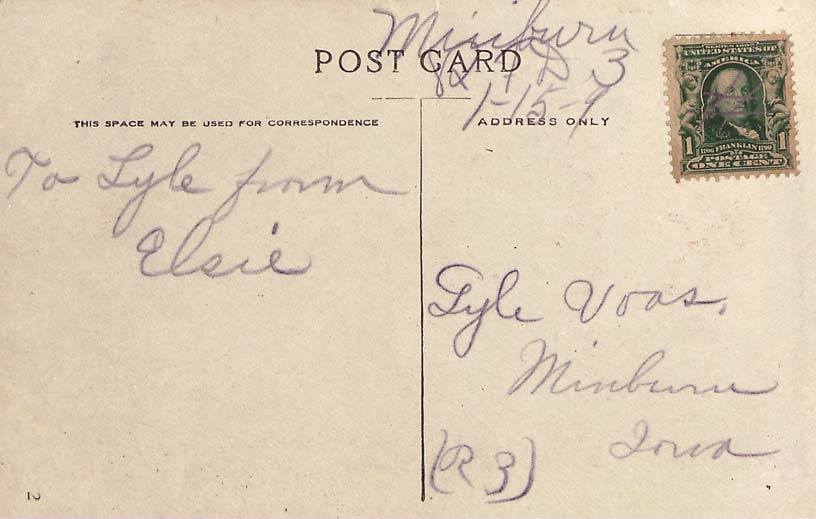 Minburn
R F D 3
1-15-9
POST CARD
THIS SPACE MAY BE USED FOR CORRESPONDENCE
ADDRESS ONLY
SERIES 1902
UNITED STATES OF
AMERICA
1 1
1706 FRANKLIN 1790
POSTAGE
ONE CENT
To Lyle from
Elsie
Lyle Voas,
Minburn
Iowa
(R 3)
2